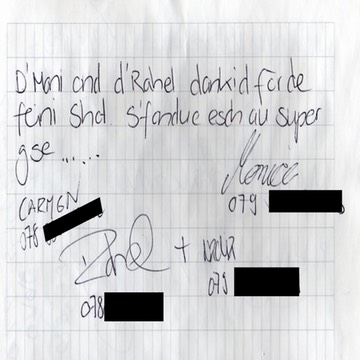 D'Moni ond d'Rahel dankid för de
feini Shot. S'fondue esch au super
gse......
Monica
CARMEN
079
078
Rahel +
079
078